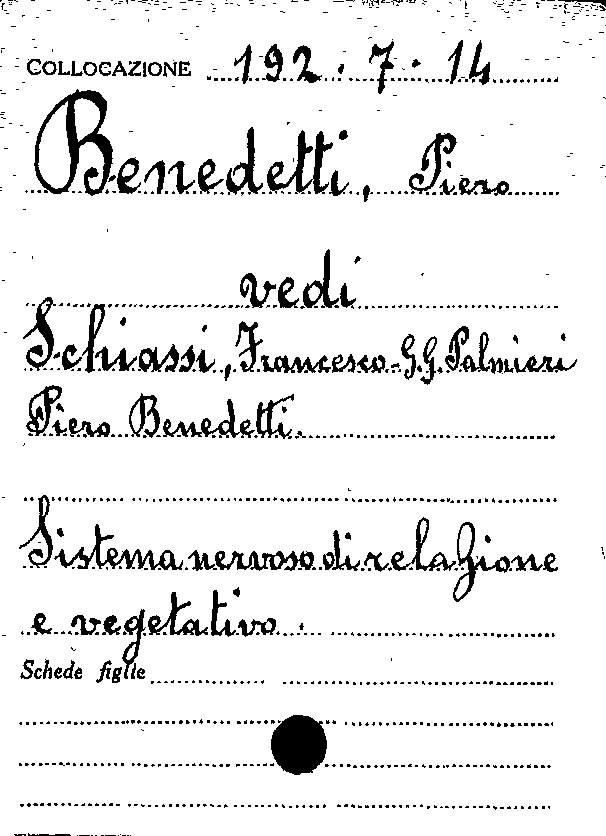 COLLOCAZIONE 192.7.14
Benedetti, Piero
vedi
Schiassi, Francesco-G.G. Palmieri
Piero Benedetti.
Sistema nervoso di relazione
e vegetativo.
Schede figlie